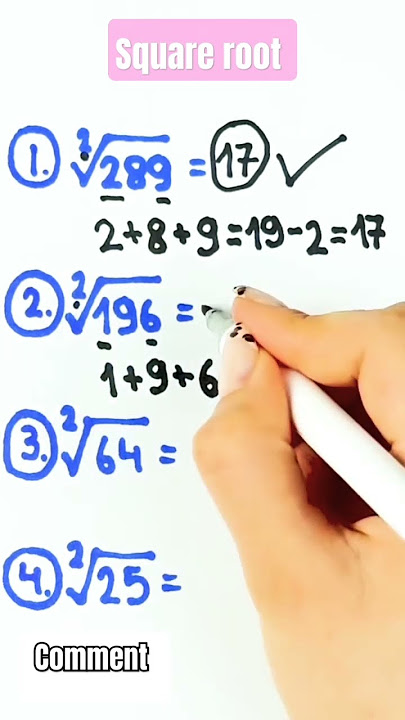 Square root
1. ²√289 = 17 ✓
2+8+9=19-2=17
2. ²√196 =
1+9+6
3. ²√64 =
4. ²√25 =
Comment